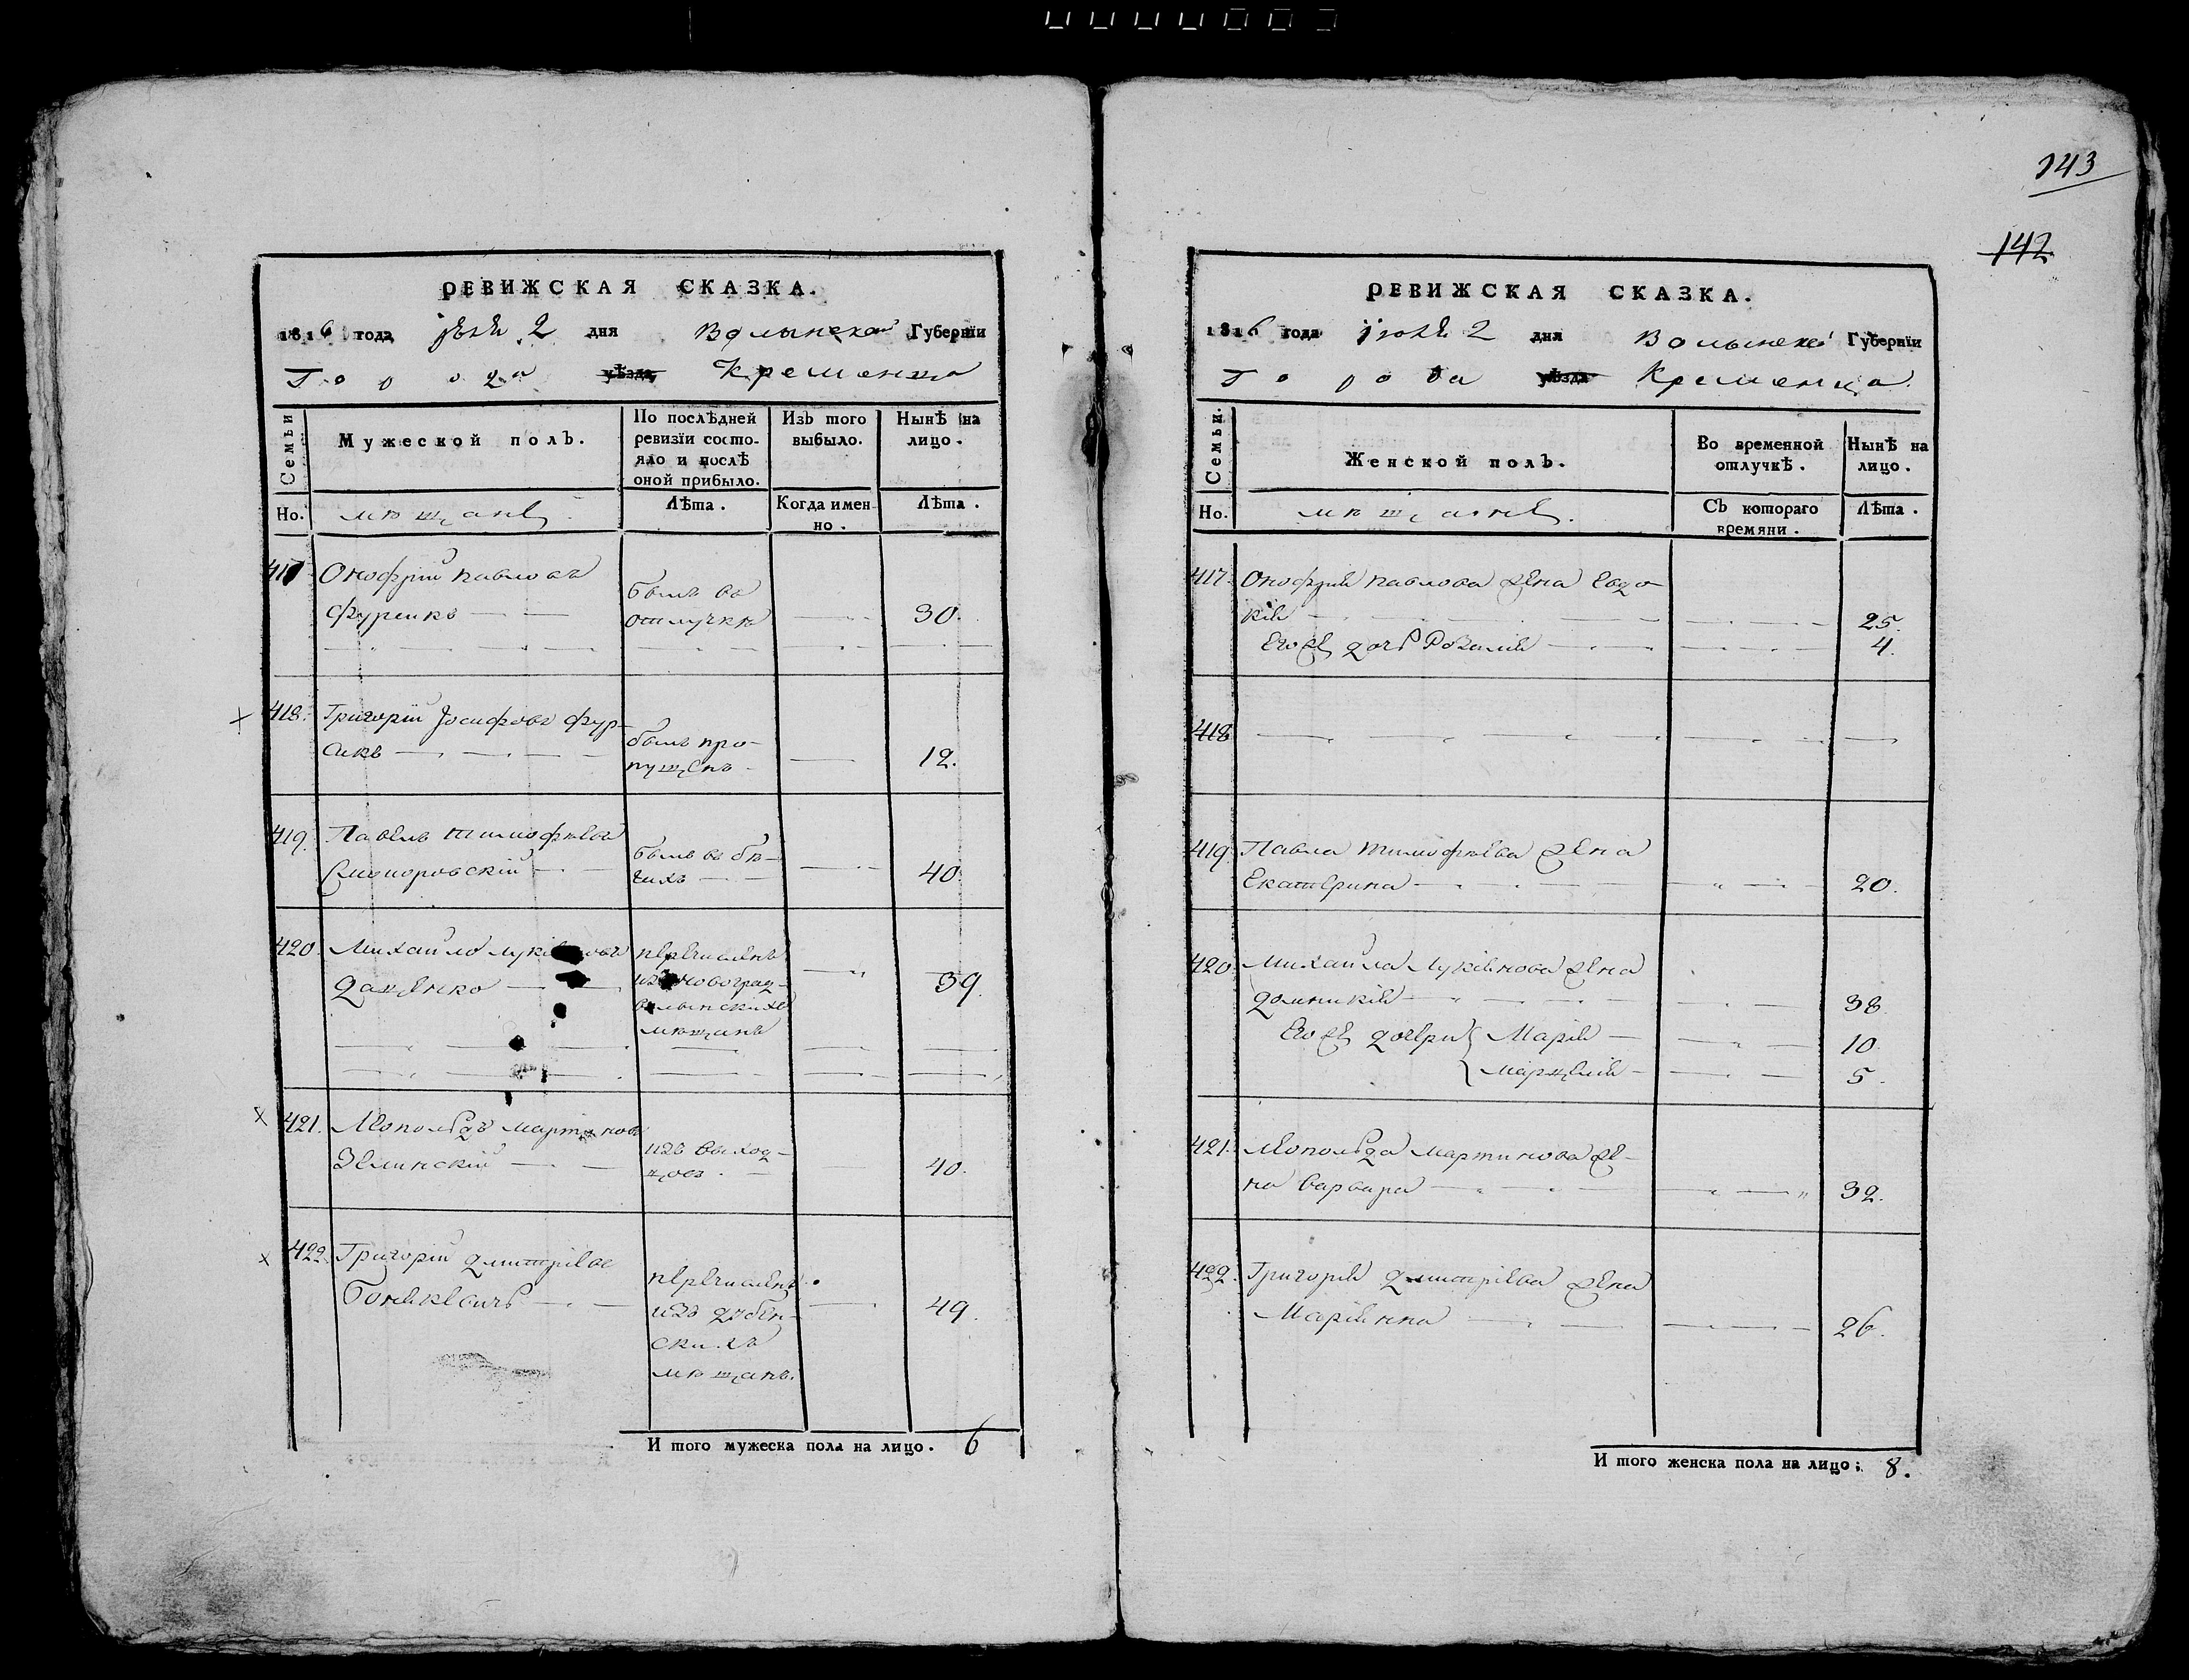 143
142
РЕВИЖСКАЯ СКАЗКА.
1816 года 2 дня Волынской Губернїи
Города уѣзда Кременца
Семьи
Мужеской полъ.
По послѣдней ревизїи состо-
яло и послѣ оной прибыло.
Изъ того выбыло.
Нынѣ на лицо.
Но.
мѣщане
Лѣта.
Когда имен-
но.
Лѣта.
417 Онофрій Павловъ
былъ въ
отлучкѣ 30.
418. Григорій Іосифовъ Фур-
сикъ
былъ про-
пущенъ 12.
419. Павелъ Тимофѣевъ
былъ въ бѣ-
гахъ 40.
420. Михайло
Даценко
перечисленъ
изъ Новоград-
волынскихъ
мѣщанъ
39.
421. Леопольдъ Мартиновъ
Зелинскій
изъ выход-
цовъ 40.
422. Григорій Дмитріевъ
перечисленъ
изъ Дубен-
скихъ
мѣщанъ.
49.
И того мужеска пола на лицо. 6
РЕВИЖСКАЯ СКАЗКА.
1816 года Іюля 2 дня Волынской Губернїи
Города уѣзда Кременца.
Семьи.
Женской полъ.
Во временной отлучкѣ.
Нынѣ на лицо.
Но.
мѣщане.
Съ котораго времяни.
Лѣта.
417. Онофрія Павлова жена Евдо-
кія 25.
Его же дочь Розалія 4.
418
419 Павла Тимофѣева жена
Екатерина 20.
420 Михайла Лукіянова жена
Доминикія 38
Его же дочери Марія 10
Марцелія 5.
421. Леопольда Мартинова же-
на Варвара 32.
422. Григорія Дмитріева жена
Маріянна 26.
И того женска пола на лицо; 8.